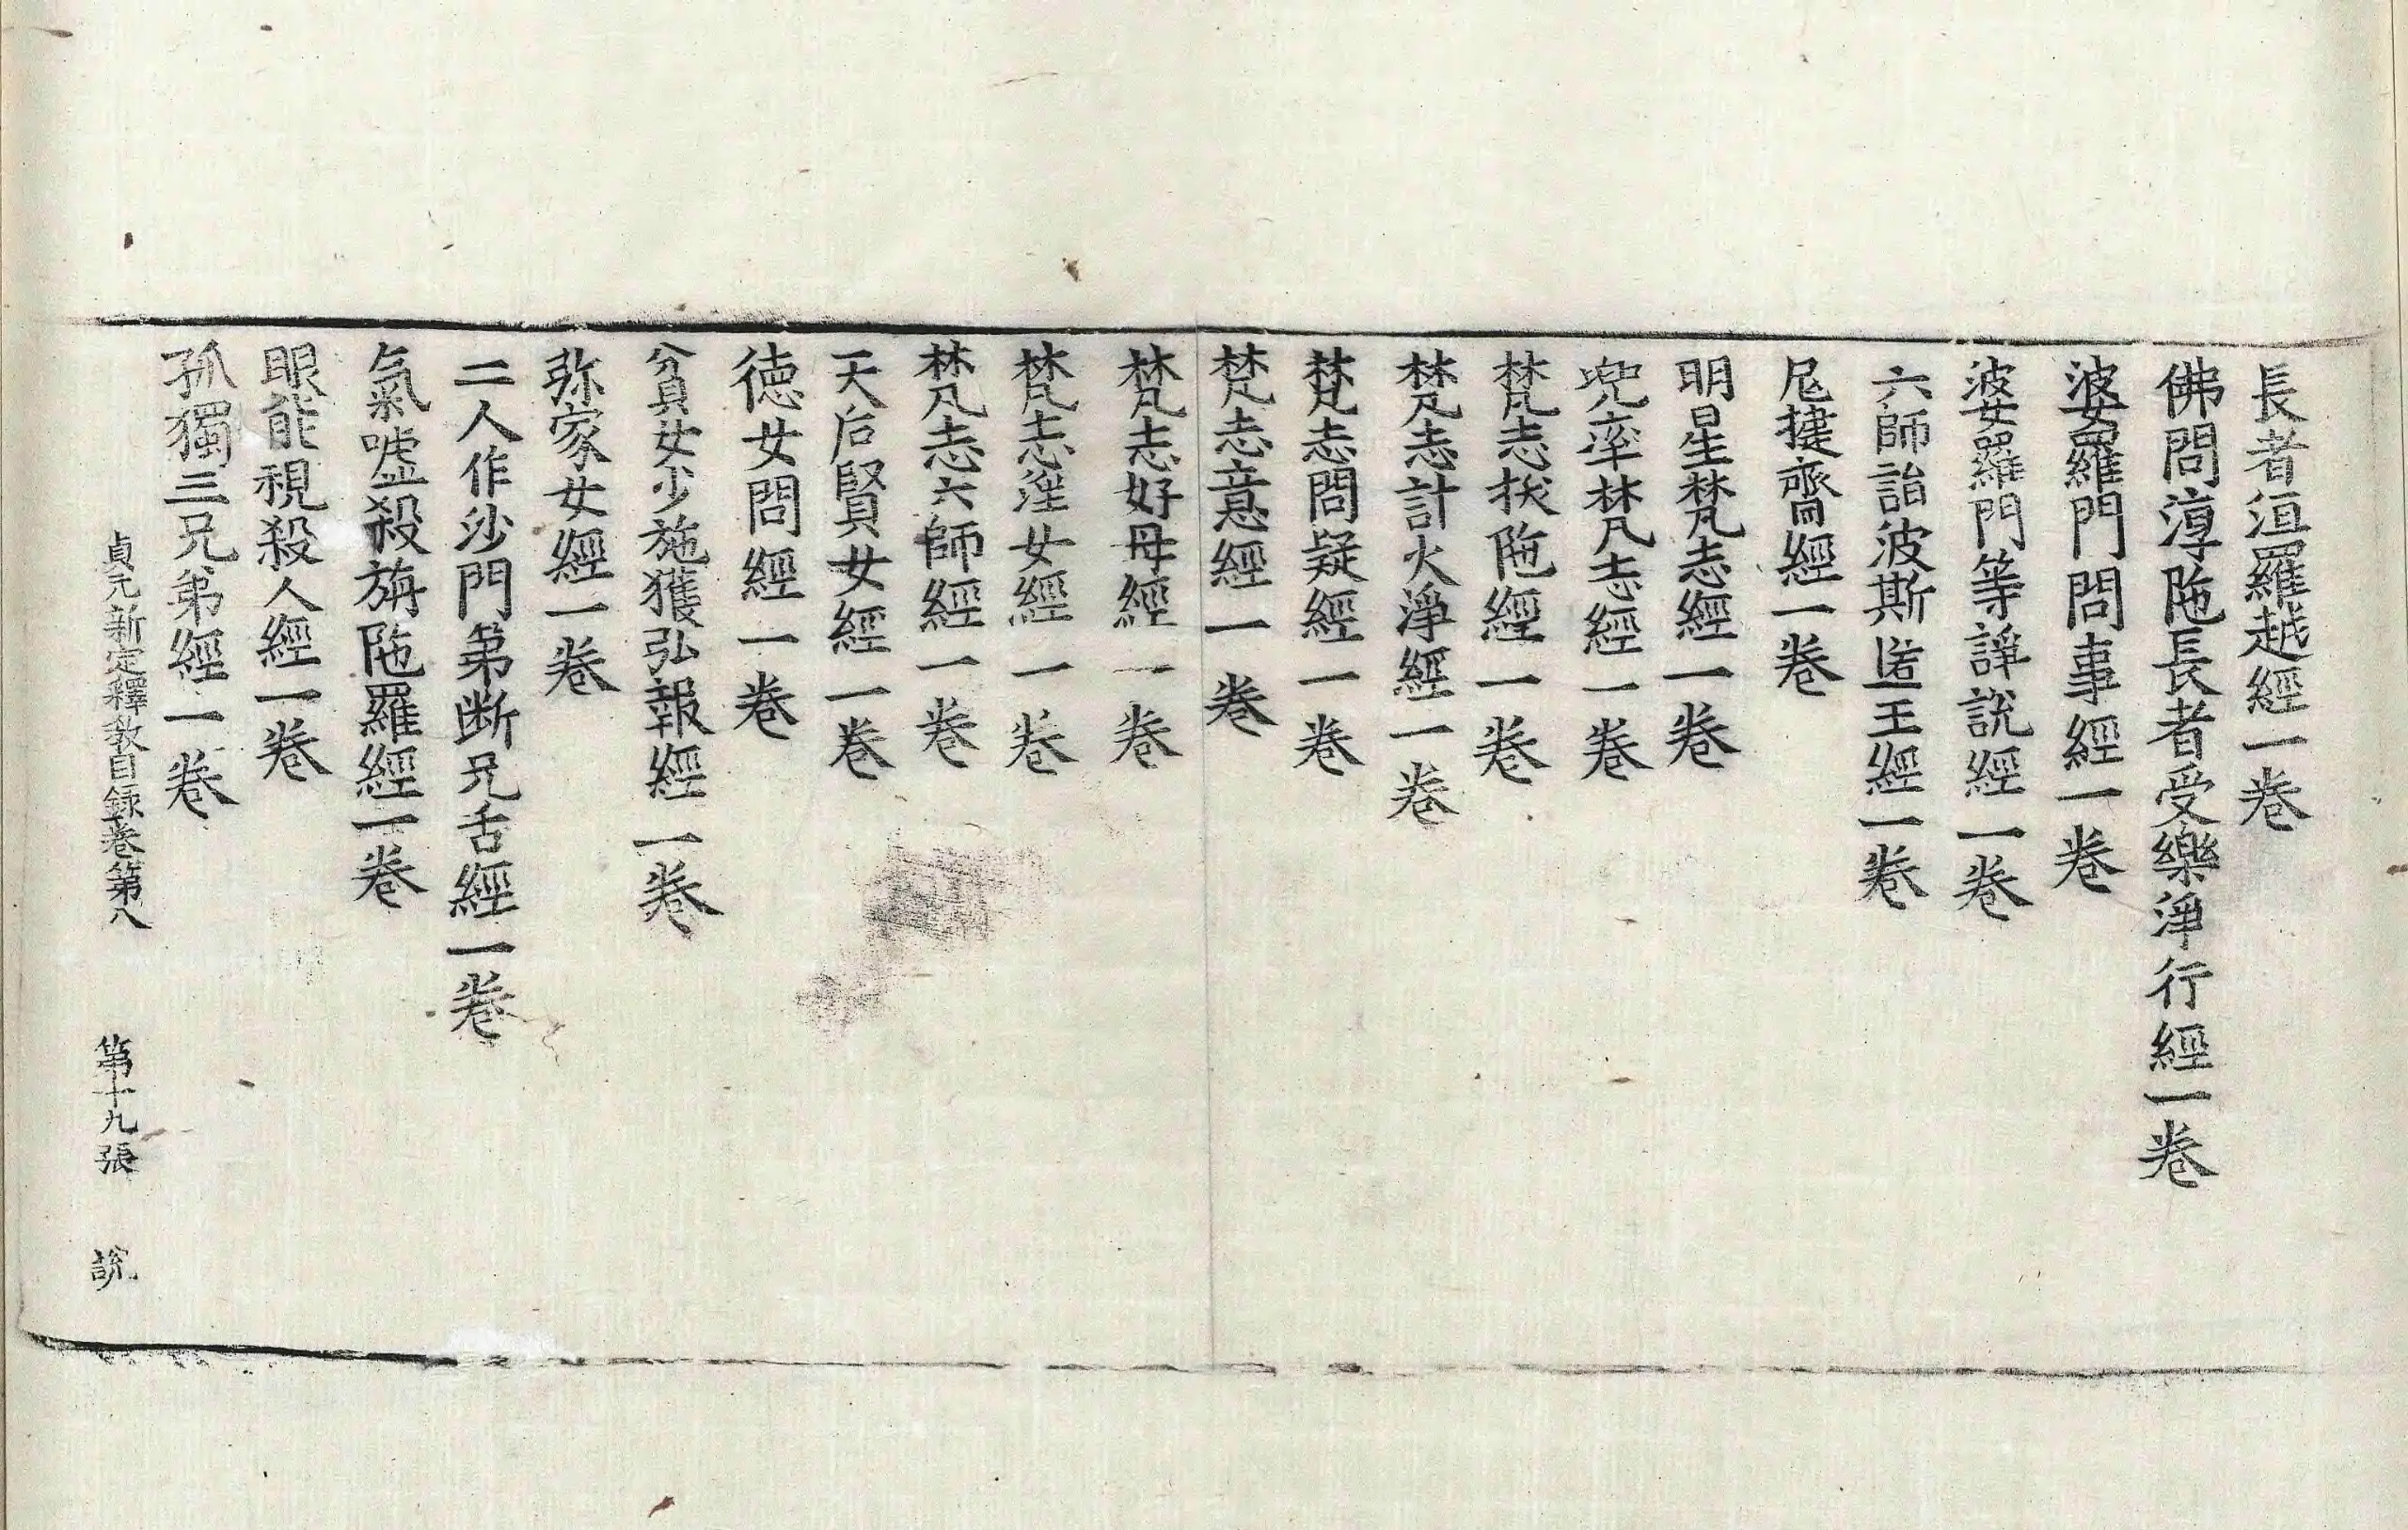 長者洹羅越經一卷
佛問淳陁長者受樂淨行經一卷
婆羅門問事經一卷
婆羅門等諍說經一卷
六師詣波斯匿王經一卷
尼揵齋經一卷
明星梵志經一卷
兜率梵志經一卷
梵志拔陁經一卷
梵志計火淨經一卷
梵志問疑經一卷
梵志意經一卷
梵志好母經一卷
梵志婬女經一卷
梵志六師經一卷
天后賢女經一卷
德女問經一卷
貧女少施獲弘報經一卷
弥家女經一卷
二人作沙門弟断兄舌經一卷
氣噓殺旃陁羅經一卷
眼能視殺人經一卷
孤獨三兄弟經一卷
貞元新定釋教目録卷第八 第十九張 說